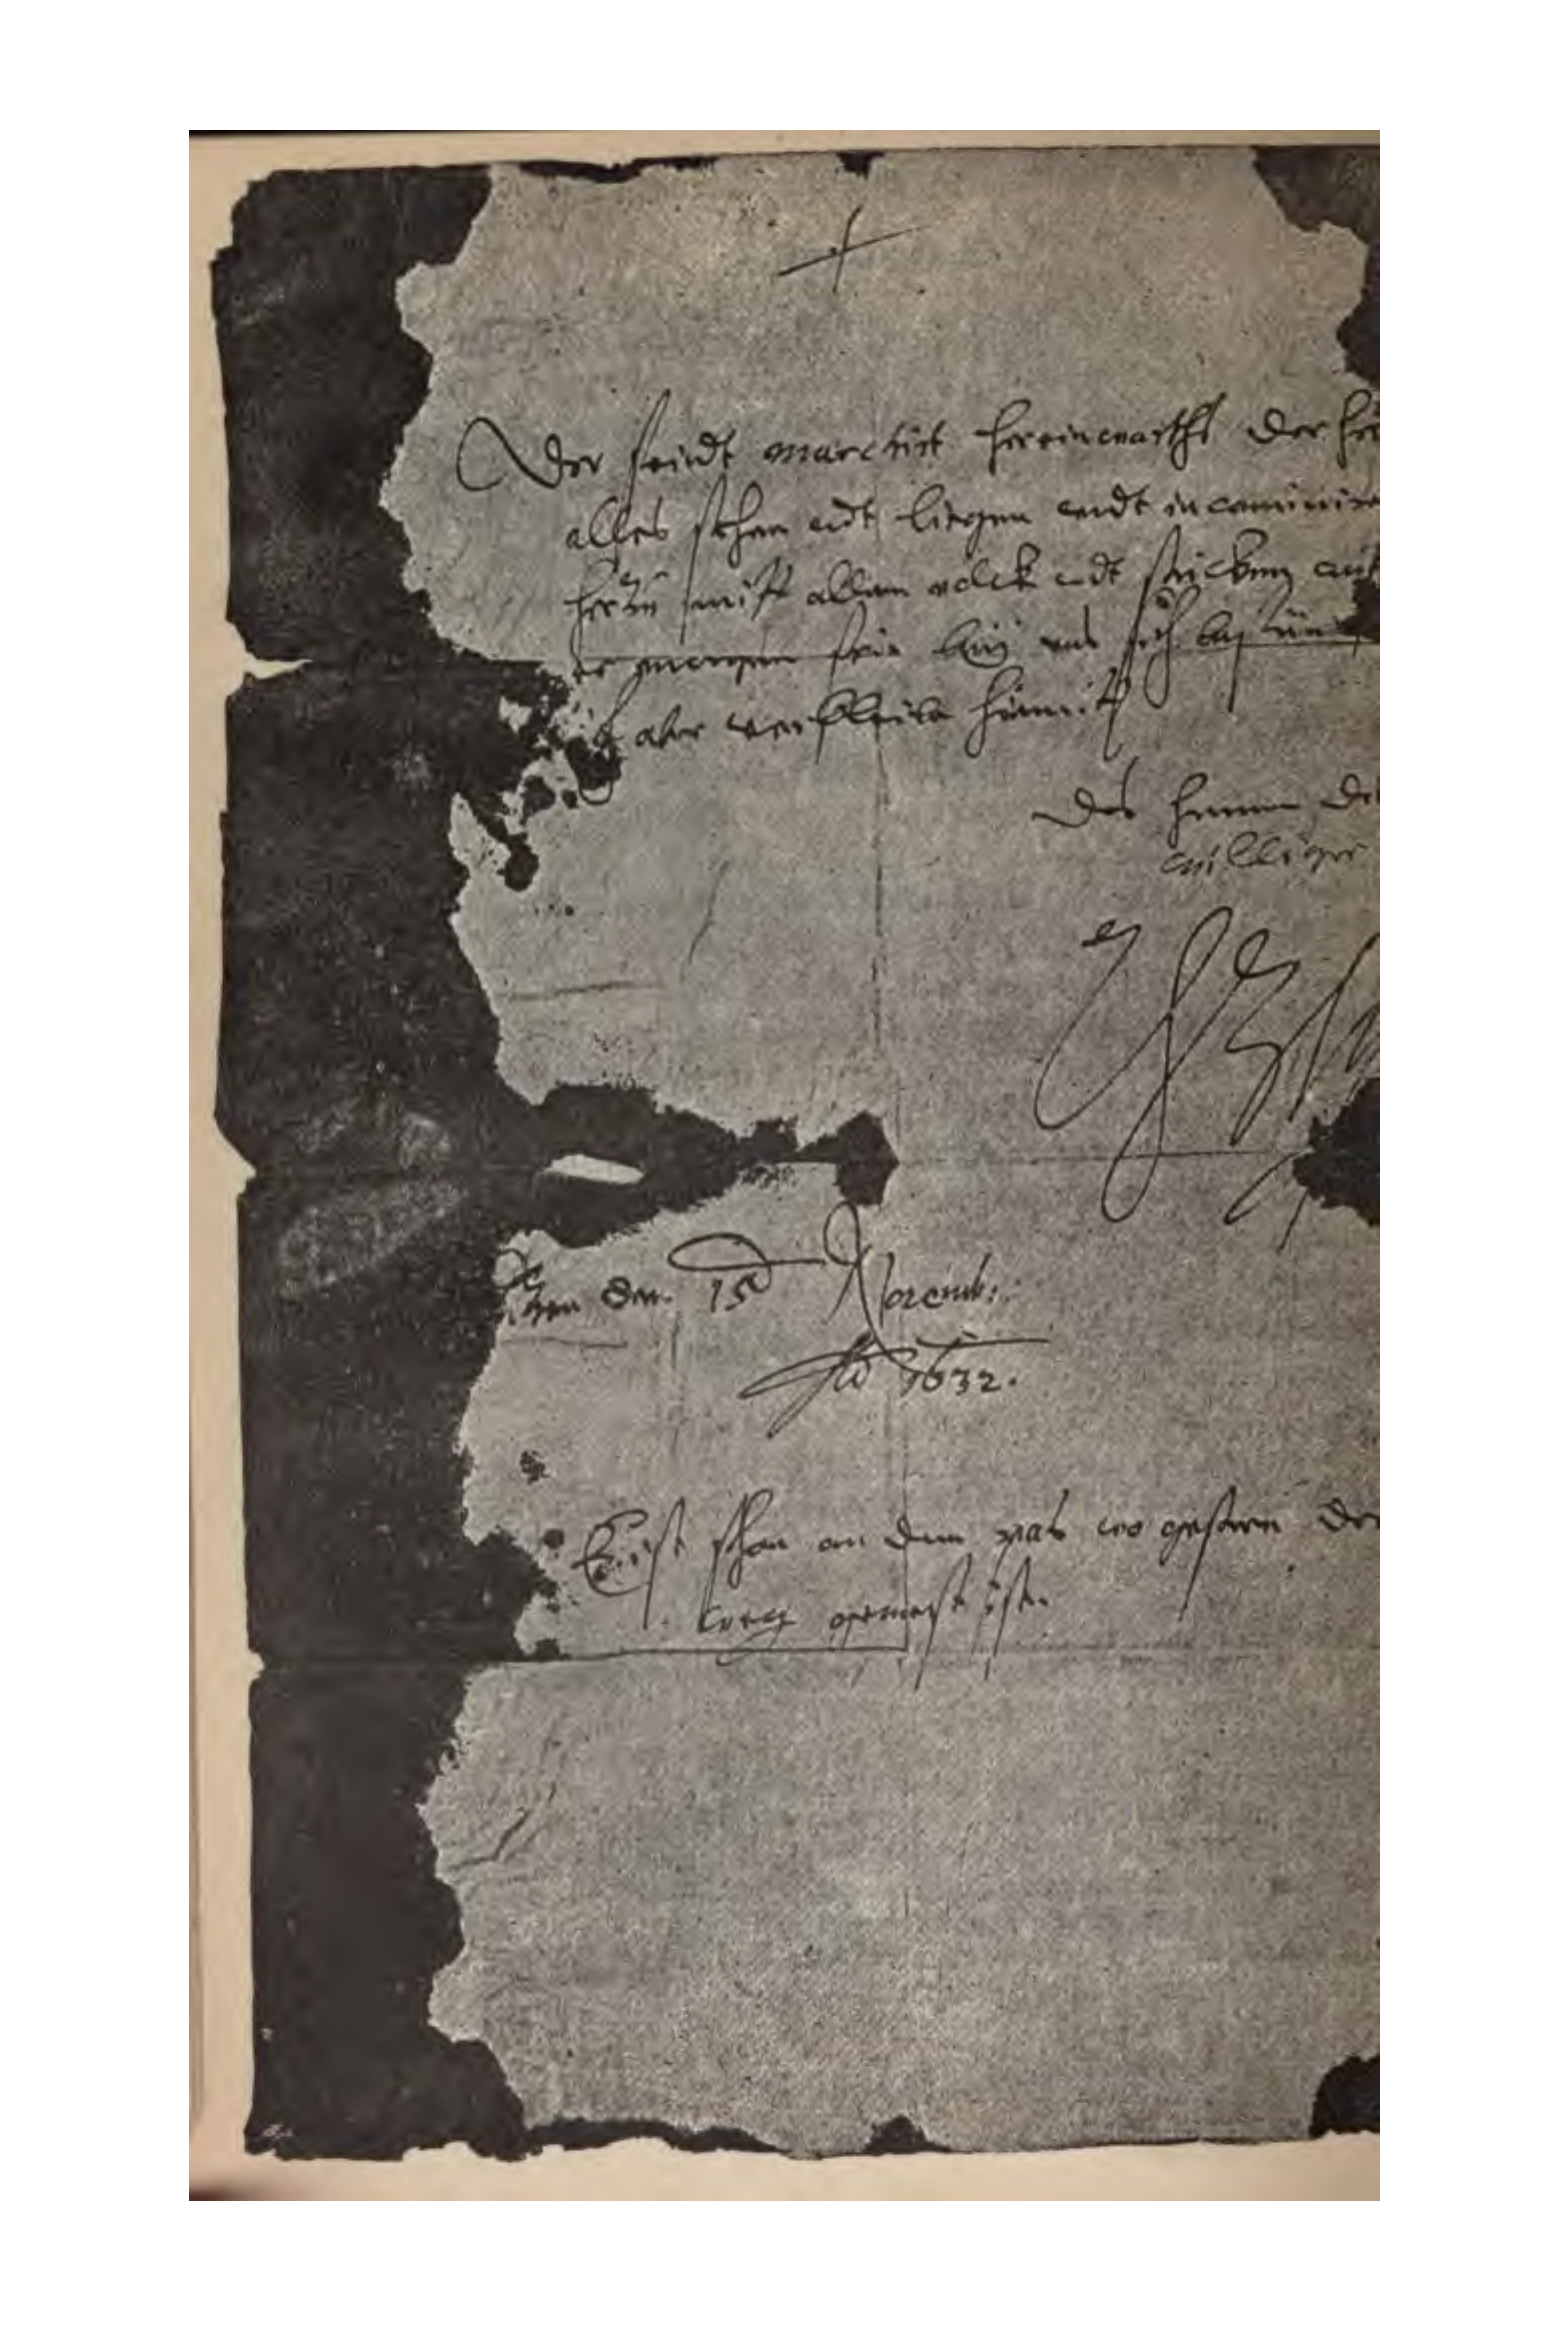 Der feindt marchirt hereinwarths der her
alles stehen undt liegen undt incaminire
herzu mitt allem volck undt stucken auf
er morgen frue bey uns sich befunden
ich aber verbleibe hiemit
des herren die
williger
AHzM
Lützen den 15 Novemb:
Ao 1632.
Er ist schon an dem pas wo gestern der
weg gewest ist.